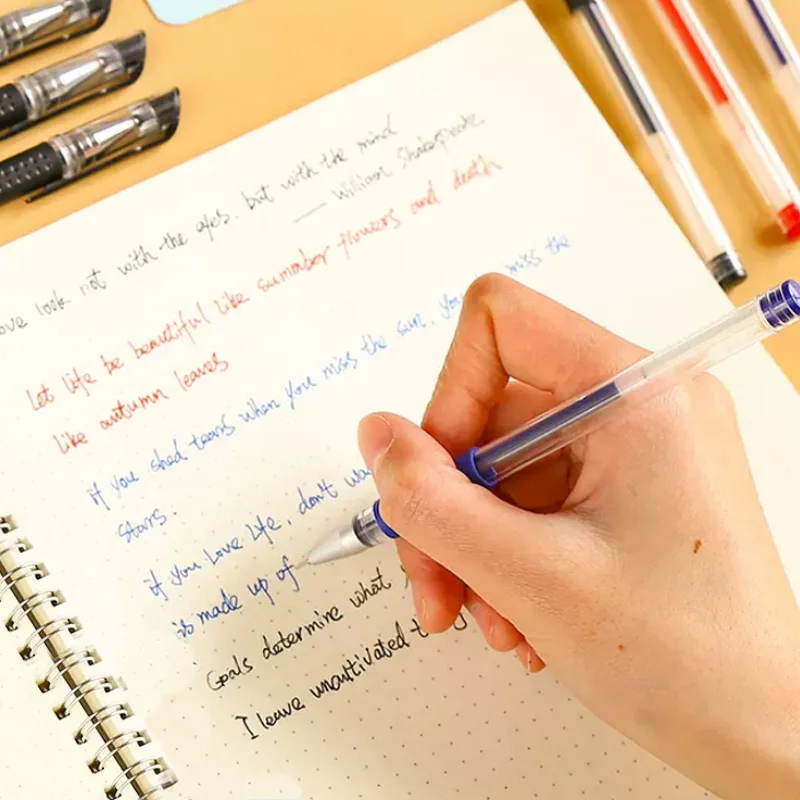 ove look not with the eyes, but with the mind
— William Shakespeare
Let life be beautiful like summber flowers and death
like autumn leaves
if you shed tears when you miss the sun, you miss the
stars.
if you Love life, don't wa
is made up of
Goals determine what y
I leave unaultivated t